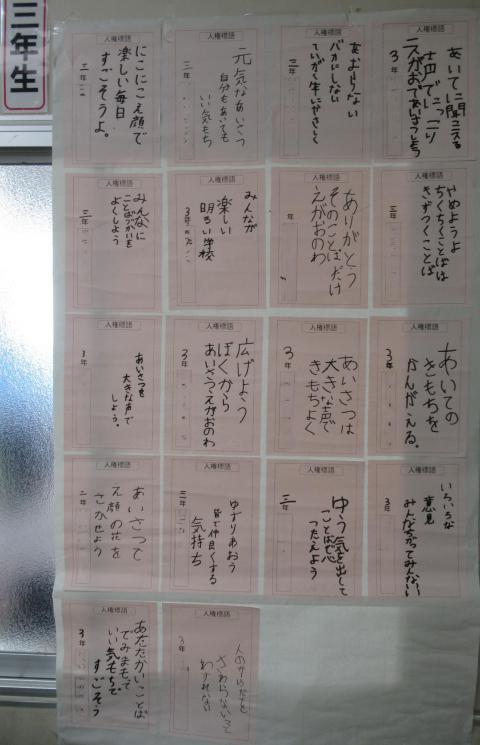 三年生
人権標語
あいてに聞こえる
声でにっこり
えがおであいさつしよう
3年
人権標語
あおらない
バカにしない
ていがく生にやさしく
三年
人権標語
元気なあいさつ
自分もあいても
いい気もち
三年
人権標語
にこにこえ顔で
楽しい毎日
すごそうよ。
三年
人権標語
やめようよ
ちくちくことばは
きずつくことば
三年
人権標語
ありがとう
そのことばだけ
えがおのわ
年
人権標語
みんなが
楽しい
明るい学校
3年
人権標語
みんなに
ことばづかいを
よくしよう
三年
人権標語
あいての
きもちを
かんがえる。
3年
人権標語
あいさつは
大きな声で
きもちよく
3年
人権標語
広げよう
ぼくから
あいさつえがおのわ
3年
人権標語
あいさつを
大きな声で
しよう。
3年
人権標語
いろいろな
意見
みんなちがってみんないい
3年
人権標語
ゆう気を出して
ことばで
つたえよう
三年
人権標語
ゆずりあおう
皆で仲良くする
気持ち
三年
人権標語
あいさつで
え顔の花を
さかせよう
三年
人権標語
人のからだを
さわらないこと
わすれない
3年
人権標語
あたたかいことば
でみまもって
いい気もちで
すごそう
3年